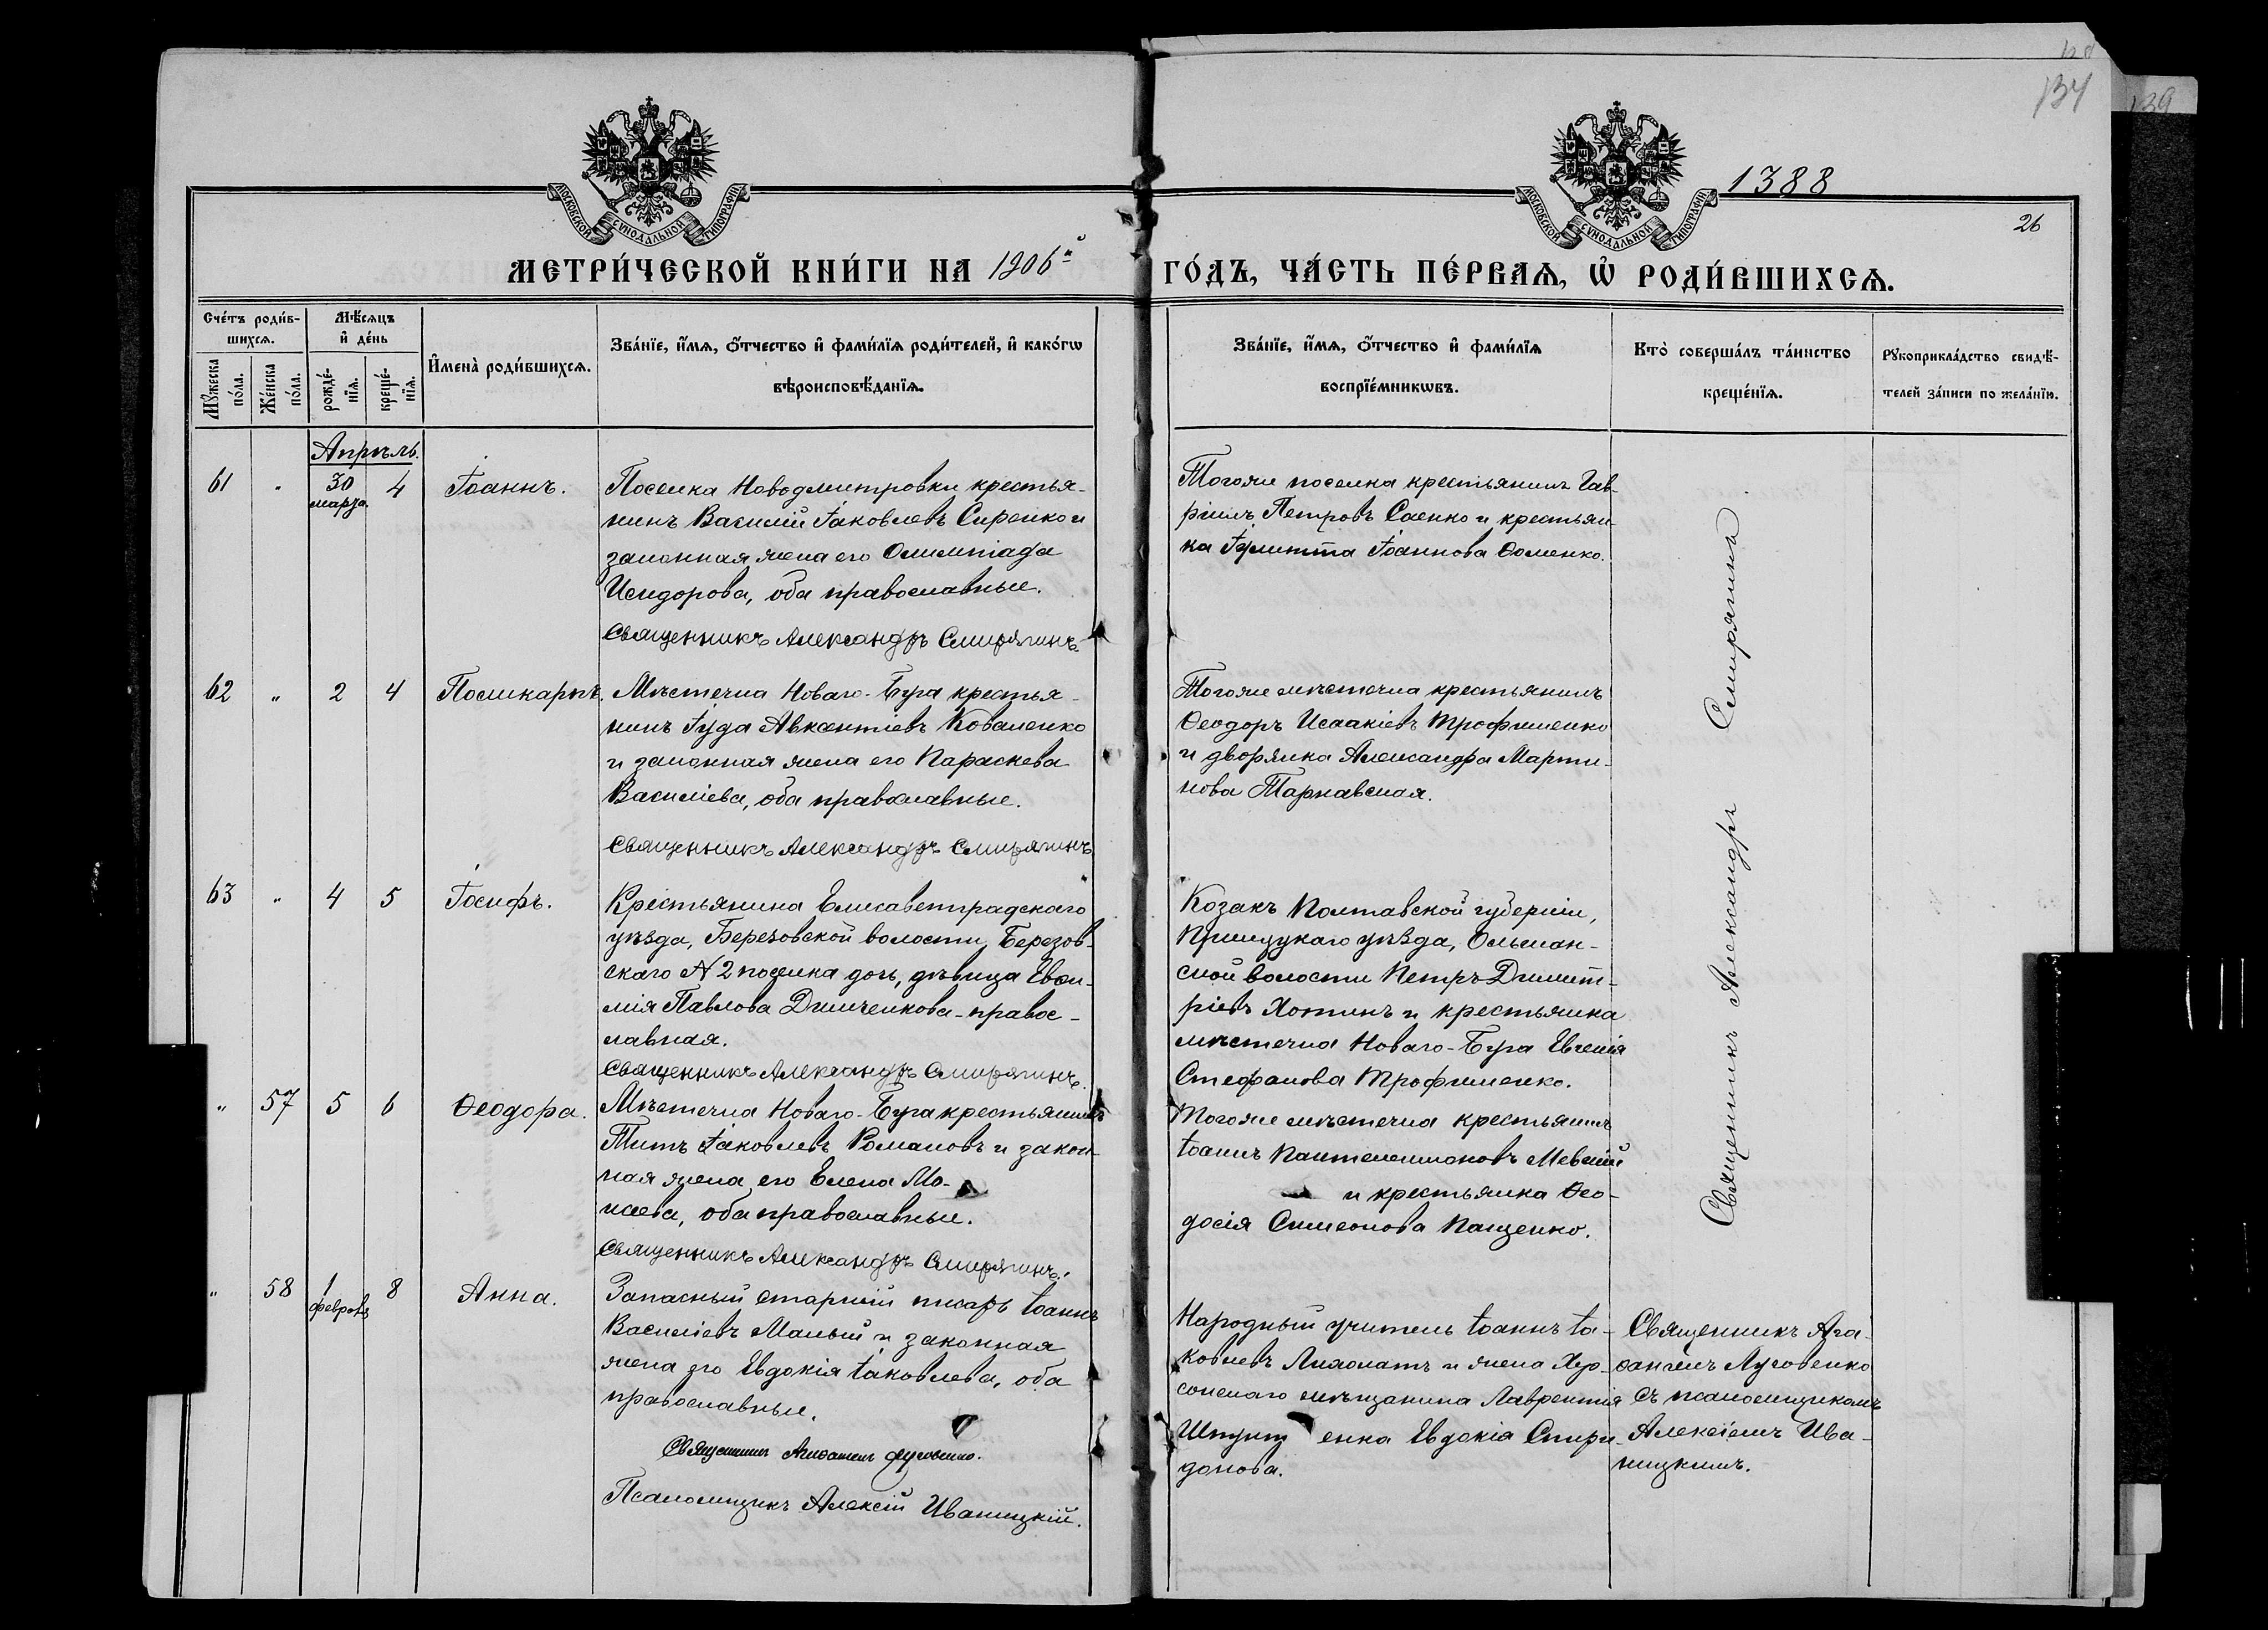 134
139
1388
26
МОСКОВСКОЙ СѴНОДАЛЬНОЙ ТИПОГРАФІИ
МОСКОВСКОЙ СѴНОДАЛЬНОЙ ТИПОГРАФІИ
МЕТРИ́ЧЕСКОЙ КНИ́ГИ НА 1906й ГО́ДЪ, ЧА́СТЬ ПЕ́РВАѦ, Ѡ҆ РОДИ́ВШИХСѦ.
Сче́тъ роди́в-
шихсѧ.
Мꙋ́жеска по́ла.
Же́нска по́ла.
Мѣ́сѧцъ
и҆ де́нь
рожде́-
нїѧ.
креще́-
нїѧ.
И҆мена̀ роди́вшихсѧ.
Зва́нїе, и҆́мѧ, ѻ҆́тчество и҆ фами́лїѧ роди́телей, и҆ како́гѡ
вѣроисповѣ́данїѧ.
Зва́нїе, и҆́мѧ, ѻ҆́тчество и҆ фами́лїѧ
воспрїе́мникѡвъ.
Кто̀ соверша́лъ та́инство
креще́нїѧ.
Рꙋкоприкла́дство свидѣ́-
телей за́писи по жела́нїю.
Апрѣль.
61 " 30 марта. 4 Іоаннъ.
Поселка Новодмитровки крестья-
нинъ Василій Іаковлевъ Сиренко и
законная жена его Олимпіада
Исидорова, оба православные.
Священникъ Александръ Смирягинъ.
Тогоже поселка крестьянинъ Гав-
ріилъ Петровъ Саенко и крестьян-
ка Іулитта Іоаннова Ѳоменко.
62 " 2 4 Поликарпъ.
Мѣстечка Новаго-Буга крестья-
нинъ Іуда Авксентіевъ Коваленко
и законная жена его Параскева
Василіева, оба православные.
Священникъ Александръ Смирягинъ
Тогоже мѣстечка крестьянинъ
Ѳеодоръ Исаакіевъ Трофименко
и дворянка Александра Марти-
нова Тарнавская.
63 " 4 5 Іосифъ.
Крестьянина Елисаветградскаго
уѣзда, Березовской волости, Березов-
скаго № 2 поселка дочь, дѣвица Евѳи-
мія Павлова Димченкова - правос-
лавная.
Священникъ Александръ Смирягинъ.
Козакъ Полтавской губерніи,
Прилуцкаго уѣзда, Ольшан-
ской волости Петръ Димит-
ріевъ Хотинъ и крестьянка
мѣстечка Новаго-Буга Евгенія
Стефанова Трофименко.
" 57 5 6 Ѳеодора.
Мѣстечка Новаго-Буга крестьянинъ
Титъ Іаковлевъ Романовъ и закон-
ная жена его Елена Мо-
исеева, оба православные.
Священникъ Александръ Смирягинъ.
Тогоже мѣстечка крестьянинъ
Іоаннъ Пантелеимоновъ
и крестьянка Ѳео-
досія Симеонова Пащенко.
Священникъ Александръ Смирягинъ
" 58 1 февраля 8 Анна.
Запасный старшій писарь Іоаннъ
Василіевъ Малый и законная
жена его Евдокія Іаковлева, оба
православные.
Священникъ Агаѳангелъ Луговенко.
Псаломщикъ Алексій Иваницкій.
Народный учитель Іоаннъ Іа-
ковлевъ и жена Хер-
сонскаго мѣщанина Лаврентія
енка Евдокія Спири-
донова.
Священникъ Ага-
ѳангелъ Луговенко
съ псаломщикомъ
Алексіемъ Ива-
ницкимъ.